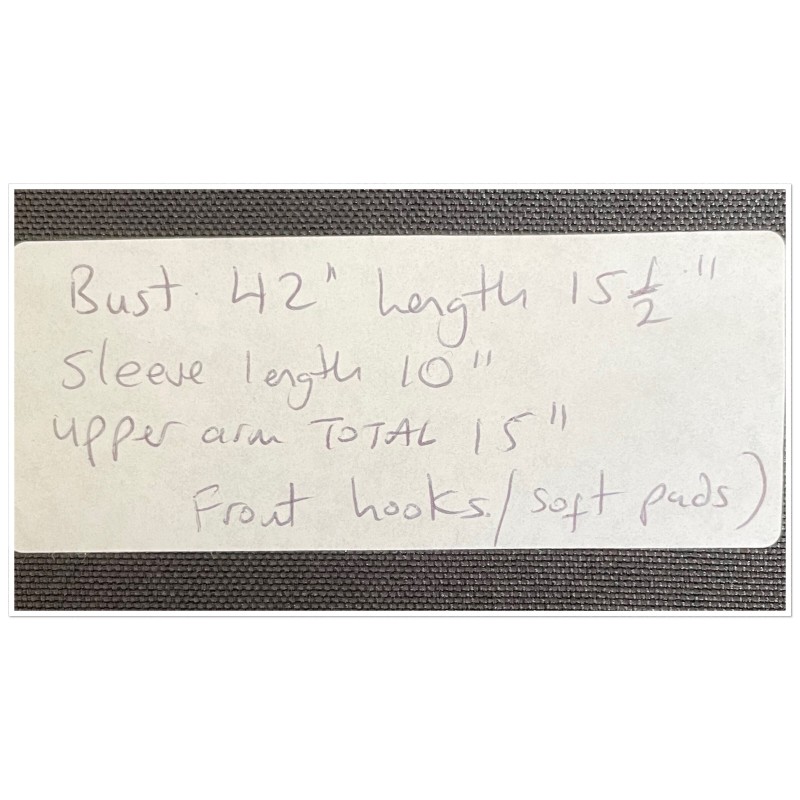 Bust. 42" Length 15 1/2"
Sleeve length 10"
upper arm TOTAL 15"
Front hooks./soft pads)